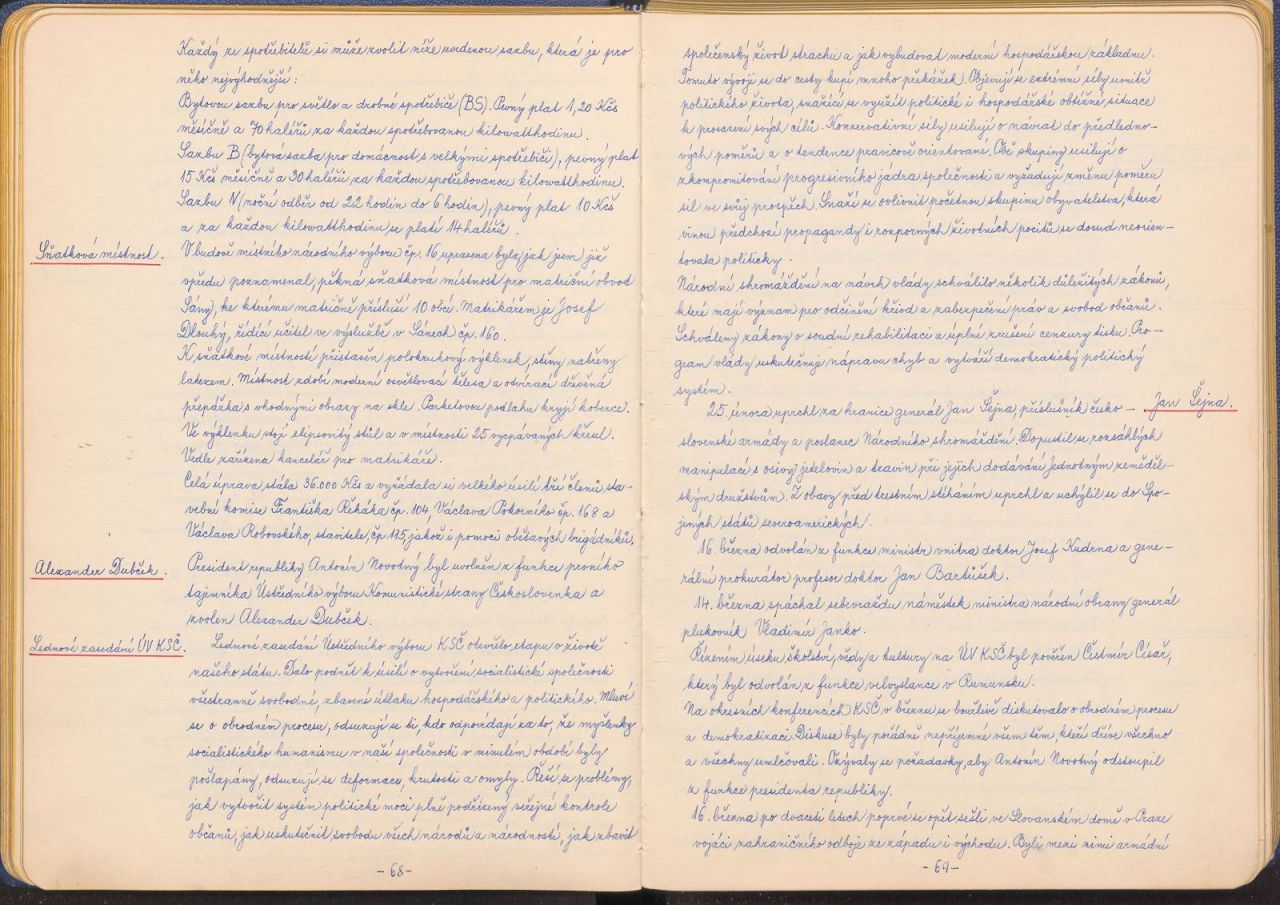 Každý ze spotřebitelů si může zvolit níže uvedenou sazbu, která je pro
něho nejvýhodnější:
Bytovou sazbu pro světlo a drobné spotřebiče (BS). Pevný plat 1,20 Kčs
měsíčně a 70 haléřů za každou spotřebovanou kilowatthodinu.
Sazbu B (bytová sazba pro domácnost s velkými spotřebiči), pevný plat
15 Kčs měsíčně a 30 haléřů za každou spotřebovanou kilowatthodinu.
Sazbu N (noční odběr od 22 hodin do 6 hodin), pevný plat 10 Kčs
a za každou kilowatthodinu se platí 14 haléřů.
Sňatková místnost.
V budově místního národního výboru čp. 16 upravena byla, jak jsem již
vpředu poznamenal, pěkná sňatková místnost pro matriční obvod
Sány, ke kterému matričně přísluší 10 obcí. Matrikářem je Josef
Dlouhý, řídící učitel ve výslužbě v Sánech čp. 160.
K sňatkové místnosti přistavěn polokruhový výklenek, stěny natřeny
latexem. Místnost zdobí moderní osvětlovací tělesa a otvírací dřevěná
přepážka s vhodnými obrazy na skle. Parketovou podlahu kryjí koberce.
Ve výklenku stojí elipsovitý stůl a v místnosti 25 vycpávaných křesel.
Vedle zařízena kancelář pro matrikáře.
Celá úprava stála 36.000 Kčs a vyžádala si velkého úsilí tří členů sta-
vební komise Františka Řeháka čp. 104, Václava Pokorného čp. 168 a
Václava Robovského, stavitele, čp. 115, jakož i pomoci obětavých brigádníků.
Alexander Dubček.
President republiky Antonín Novotný byl uvolněn z funkce prvního
tajemníka Ústředního výboru Komunistické strany Československa a
zvolen Alexander Dubček.
Lednové zasedání ÚV KSČ.
Lednové zasedání Ústředního výboru KSČ otevřelo etapu v životě
našeho státu. Dalo podnět k úsilí o vytvoření socialistické společnosti
všestranně svobodné, zbavené útlaku hospodářského a politického. Mluví
se o obrodném procesu, odsuzují se ti, kdo odpovídají za to, že myšlenky
socialistického humanismu v naší společnosti v minulém období byly
pošlapány, odsuzují se deformace, krutosti a omyly. Řeší se problémy,
jak vytvořit systém politické moci plně podřízený veřejné kontrole
občanů, jak uskutečnit svobodu všech národů a národností, jak zbavit
-68-
společenský život strachu a jak vybudovat moderní hospodářskou základnu.
Tomuto vývoji se do cesty kupí mnoho překážek. Objevují se extrémní síly uvnitř
politického života, snažící se využít politické i hospodářské obtížné situace
k prosazení svých cílů. Konzervativní síly usilují o návrat do předledno-
vých poměrů a o tendence pravicově orientované. Obě skupiny usilují o
zkompromitování progresivního jádra společnosti a vyžadují změnu poměru
sil ve svůj prospěch. Snaží se ovlivnit početnou skupinu obyvatelstva, která
vinou předchozí propagandy i rozporných životních pocitů se dosud neorien-
tovala politicky.
Národní shromáždění na návrh vlády schválilo několik důležitých zákonů,
které mají význam pro odčinění křivd a zabezpečení práv a svobod občanů.
Schváleny zákony o soudní rehabilitaci a úplné zrušení cenzury tisku. Pro-
gram vlády uskutečňuje nápravu chyb a vytváří demokratický politický
systém.
25. února uprchl za hranice generál Jan Šejna, příslušník česko-
Jan Šejna.
slovenské armády a poslanec Národního shromáždění. Dopustil se rozsáhlých
manipulací s osivy jetelovin a travin při jejich dodávání Jednotným zeměděl-
ským družstvům. Z obavy před trestním stíháním uprchl a uchýlil se do Spo-
jených států severoamerických.
16. března odvolán z funkce ministr vnitra doktor Josef Kudrna a gene-
rální prokurátor profesor doktor Jan Bartůšek.
14. března spáchal sebevraždu náměstek ministra národní obrany generál
plukovník Vladimír Janko.
Řízením úseku školství, vědy a kultury na ÚV KSČ byl pověřen Čestmír Císař,
který byl odvolán z funkce velvyslance v Rumunsku.
Na okresních konferencích KSČ v březnu se bouřlivě diskutovalo o obrodném procesu
a demokratizaci. Diskuse byly pořádně nepříjemné všem těm, kteří dříve všechno
a všechny umlčovali. Ozývaly se požadavky, aby Antonín Novotný odstoupil
z funkce presidenta republiky.
16. března po dvaceti letech poprvé se opět sešli ve Slovanském domě v Praze
vojáci zahraničního odboje ze západu i východu. Byli mezi nimi armádní
-69-